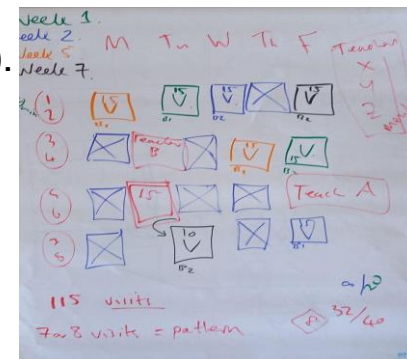 Week 1.
Week 2.
Week 5
Week 7.
M Tu W Th F Teacher
X
Y
Z
1
2
15 V B1
15 V B1
15 V B2
15 V B2
3
4
Teacher
B
15 V B1
15 V B2
5
6
15
Teach A
10 V B2
15 V B1
115 visits
7 or 8 visits = pattern
8 32/40